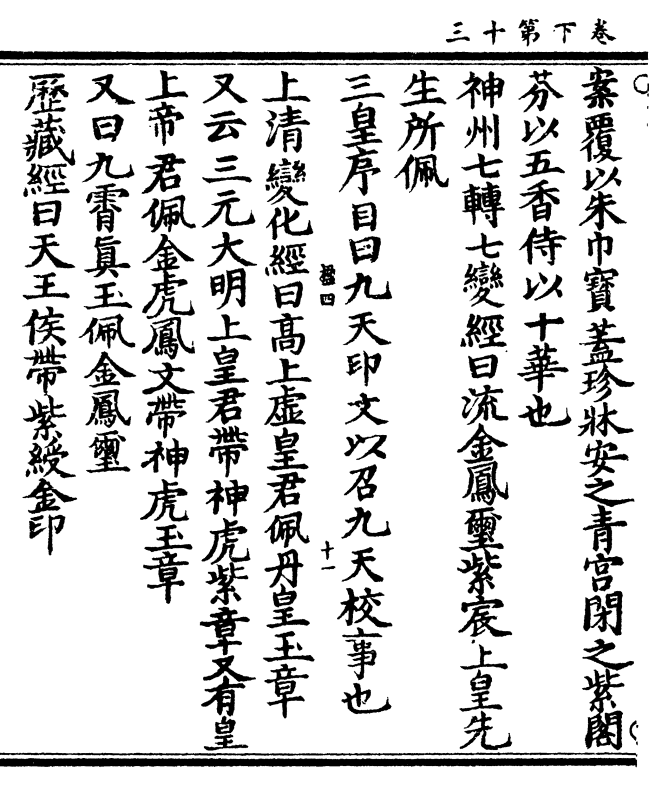 三十第下卷
案覆以朱巾寳蓋珍牀安之青宮閉之紫閣
芬以五香侍以十華也
神州七轉七變經曰流金鳳璽紫宸上皇先
生所佩
三皇序目曰九天印文以召九天校事也
上清變化經曰高上虛皇君佩丹皇玉章
又云三元大明上皇君帶神虎紫章又有皇
上帝君佩金虎鳳文帶神虎玉章
又曰九霄真玉佩金鳳璽
歷藏經曰天王俟帶紫綬金印
四
十一